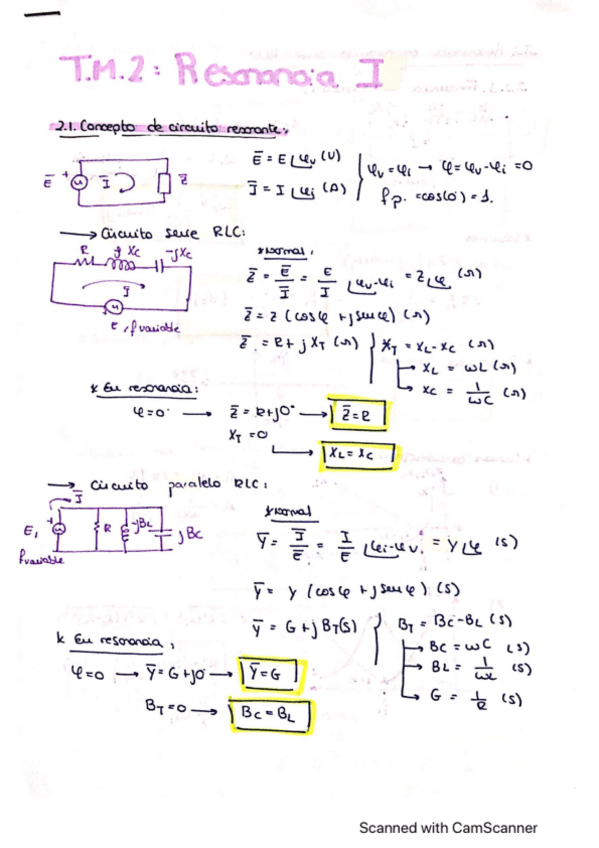 T.M.2: Resonancia I
2.1. Concepto de circuito resonante.
Ē = E∠φv (V)
Ī = I∠φi (A)
φv = φi → φ = φv-φi = 0
f.p. = cos(0) = 1.
Ē + Ī Z̄
→ Circuito serie RLC:
R jXC -jXC
Ī
E, f variable
*Normal,
Z̄ = Ē/Ī = E/I ∠φv-φi = Z∠φ (Ω)
Z̄ = Z (cosφ + jsenφ) (Ω)
Z̄ = R + jXT (Ω)
XT = XL-XC (Ω)
→ XL = ωL (Ω)
→ XC = 1/ωC (Ω)
* En resonancia:
φ=0° → Z̄ = R+j0° → Z̄=R
XT = 0
→ XL = XC
→ Circuito paralelo RLC:
Ī
E, R -jBL jBC
f variable
*Normal
Ȳ = Ī/Ē = I/E ∠φi-φv = Y∠φ (S)
Ȳ = Y (cosφ + jsenφ) (S)
Ȳ = G + jBT(S)
BT = BC-BL (S)
→ BC = ωC (S)
→ BL = 1/ωL (S)
→ G = 1/R (S)
* En resonancia,
φ=0 → Ȳ=G+j0 → Ȳ=G
BT=0 → BC = BL
Scanned with CamScanner